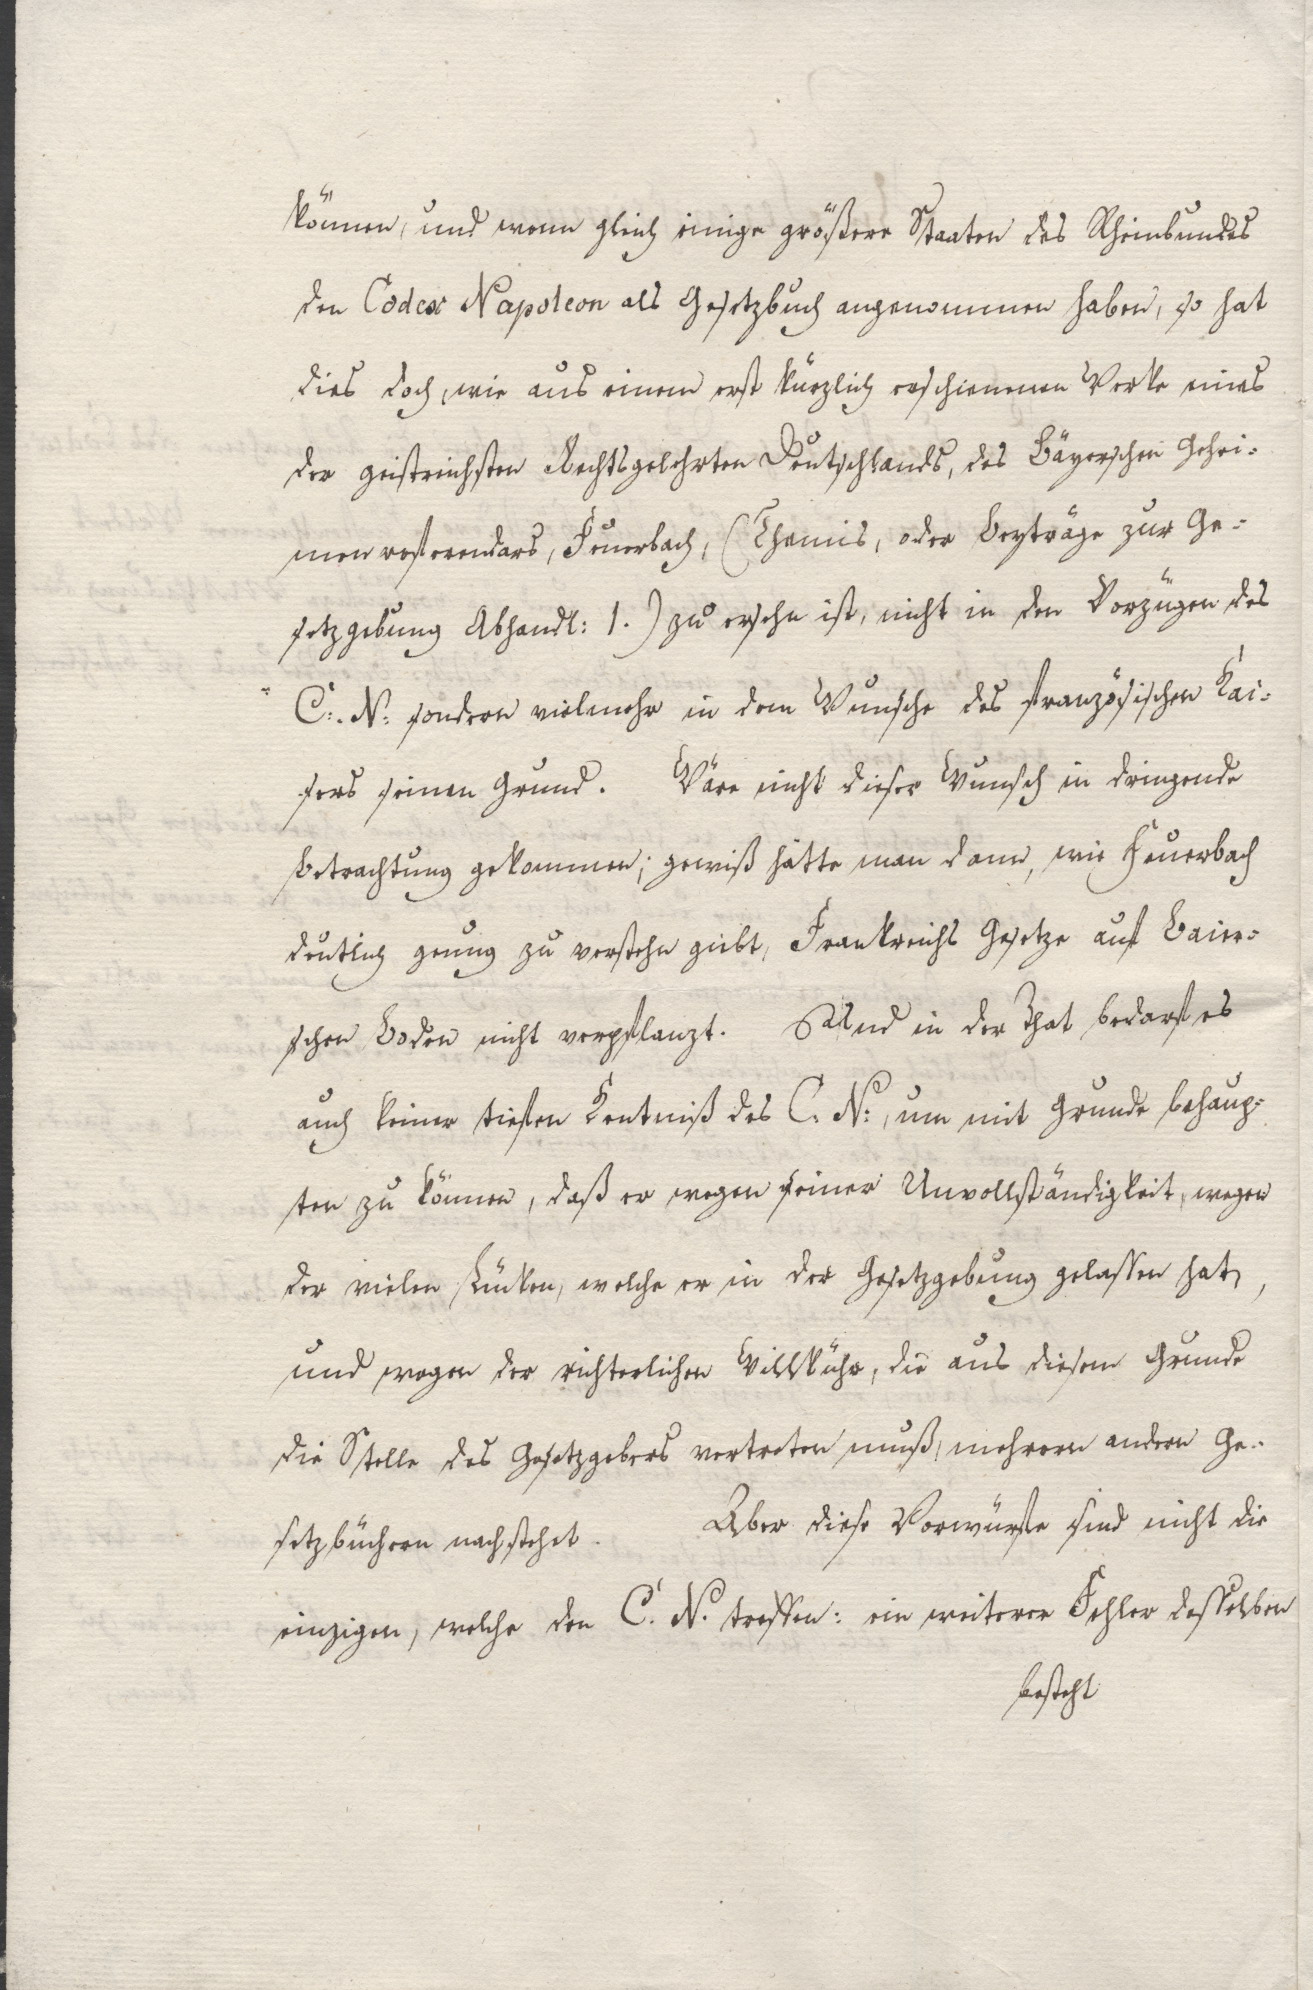 können, und wenn gleich einige größere Staaten des Rheinbundes
den Codex Napoleon als Gesetzbuch angenommen haben, so hat
dies doch, wie aus einem erst kürzlich erschienenen Werke eines
der geistreichsten Rechtsgelehrten Deutschlands, des Bäyerschen Gehei=
menreferendars, Feuerbach, (Themis, oder Beyträge zur Ge=
setzgebung Abhandl: 1.) zu ersehn ist, nicht in den Vorzügen des
C:. N: sondern vielmehr in dem Wunsche des französischen Kai=
sers seinen Grund. Wäre nicht dieser Wunsch in dringende
Betrachtung gekommen; gewiß hätte man dann, wie Feuerbach
deutlich genug zu verstehn giebt, Frankreichs Gesetze auf Baier=
schen Boden nicht verpflanzt. Und in der That bedarf es
auch keiner tiefen Kentniß des C. N:, um mit Grunde behaup=
ten zu können, daß er wegen seiner Unvollständigkeit, wegen
der vielen Lücken, welche er in der Gesetzgebung gelassen hat,
und wegen der richterlichen Willkühr, die aus diesem Grunde
die Stelle des Gesetzgebers vertreten muß, mehrern andern Ge=
setzbüchern nachstehet. Aber diese Vorwürfe sind nicht die
einzigen, welche den C. N. treffen: ein weiterer Fehler desselben
besteht